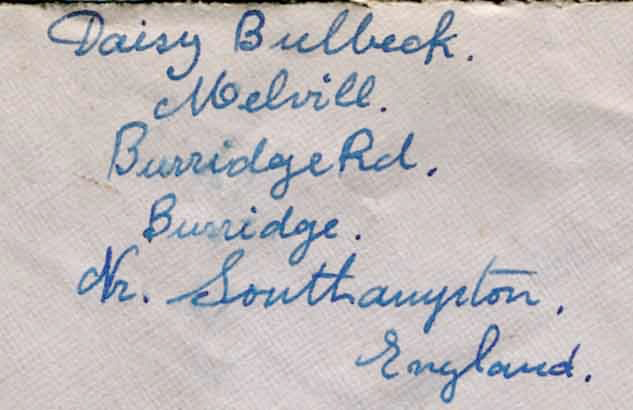 Daisy Bulbeck.
Melvill.
Burridge Rd.
Burridge.
Nr. Southampton.
England.